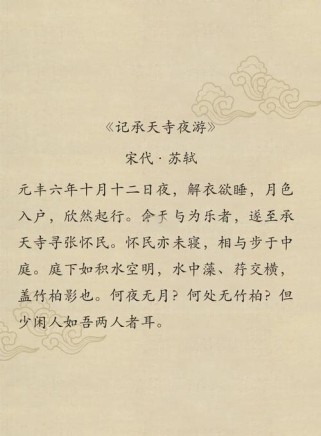 《记承天寺夜游》
宋代·苏轼
元丰六年十月十二日夜，解衣欲睡，月色
入户，欣然起行。与为乐者，遂至承
天寺寻张怀民。怀民亦未寝，相与步于中
庭。庭下如积水空明，水中藻、荇交横，
盖竹柏影也。何夜无月？何处无竹柏？但
少闲人如吾两人者耳。